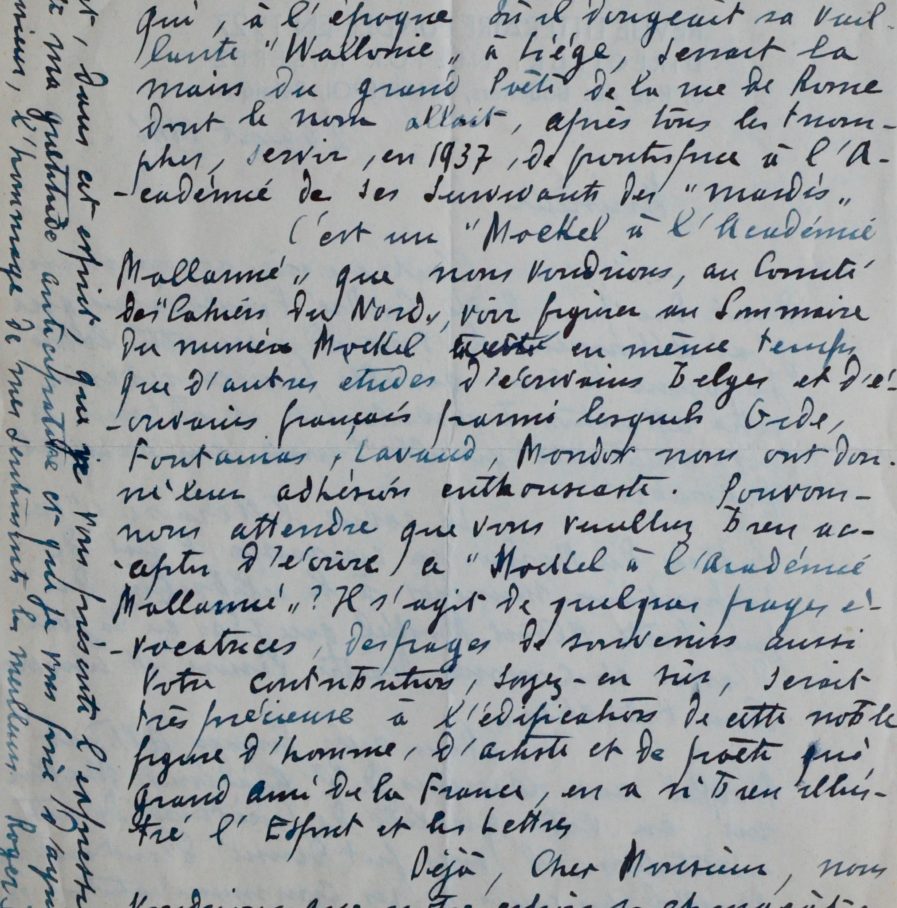 qui, à l'époque où il dirigeait sa vail-
lante "Wallonie" à Liége, serrait la
main du grand Poète de la rue de Rome
dont le nom allait, après tous les triom-
phes, servir, en 1937, de frontispice à l'A-
-cadémie de ses survivants des "mardis"
C'est un "Mockel à l'Académie
Mallarmé" que nous voudrions, au Comité
des "Cahiers du Nord", voir figurer au Sommaire
du numéro Mockel en même temps
que d'autres études d'écrivains belges et d'é-
-crivains français parmi lesquels Gide,
Fontainas, Lavaud, Mondor nous ont don-
né leur adhésion enthousiaste. Pouvons-
nous attendre que vous veuillez bien ac-
-cepter d'écrire ce "Mockel à l'Académie
Mallarmé"? Il s'agit de quelques pages é-
-vocatrices, des pages de souvenirs aussi
Votre contribution, soyez-en sûr, serait
très précieuse à l'édification de cette noble
figure d'homme, d'artiste et de poète qui
grand ami de la France, en a si bien illus-
-tré l'Esprit et les Lettres
Déjà, Cher Monsieur, nous
voudrions que
et, dans cet esprit, que je vous présente l'expression
de ma gratitude anticipative et que je vous prie d'agréer
l'hommage de mes sentiments les meilleurs Roger